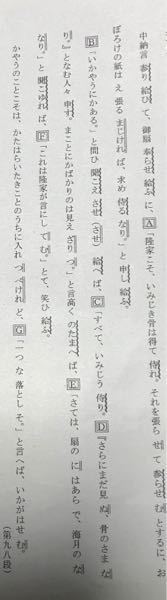 中納言参り給ひて、御扇奉らせ給ふに、A「隆家こそ、いみじき骨は得て侍れ。それを張らせて参らせむとするに、お
ぼろけの紙はえ張るまじければ、求め侍るなり。」と申し給ふ。
B「いかやうにかある。」と問ひ聞こえさせ(させ)給へば、C「すべて、いみじう侍り。D『さらにまだ見ぬ骨のさまな
り。』となむ人々申す。まことにかばかりのは見えざりつ。」と言高くのたまへば、E「さては、扇のにはあらで、海月のな
なり。」と聞こゆれば、F「これは隆家が言にしてむ。」とて、笑ひ給ふ。
かやうのことこそは、かたはらいたきことのうちに入れつべけれど、G「一つな落としそ。」と言へば、いかがはせむ。
(第九八段)